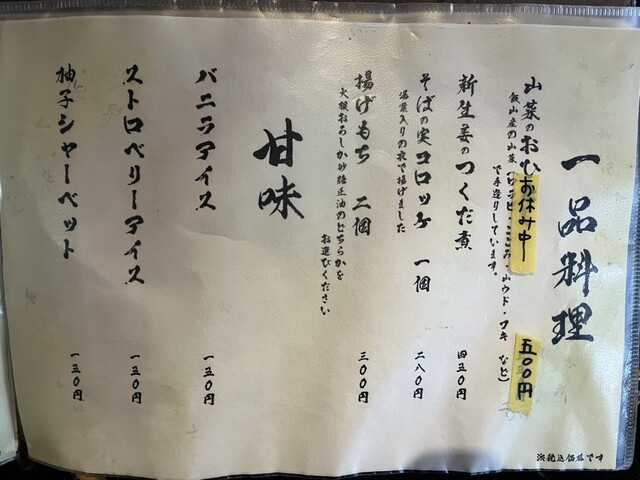 一品料理
山菜のおひお休み中 五〇〇円
飯山産の山菜 こごみ・山ウド・ワキ など)
で手造りしています。
新生姜のつくだ煮 四五〇円
そばの実コロッケ 一個 二八〇円
湯葉入りの衣で揚げました
揚げもち 二個 三〇〇円
大根おろしか砂糖正油のどちらかを
お選びください
甘味
バニラアイス 一五〇円
ストロベリーアイス 一五〇円
柚子シャーベット 一五〇円
※税込価格です